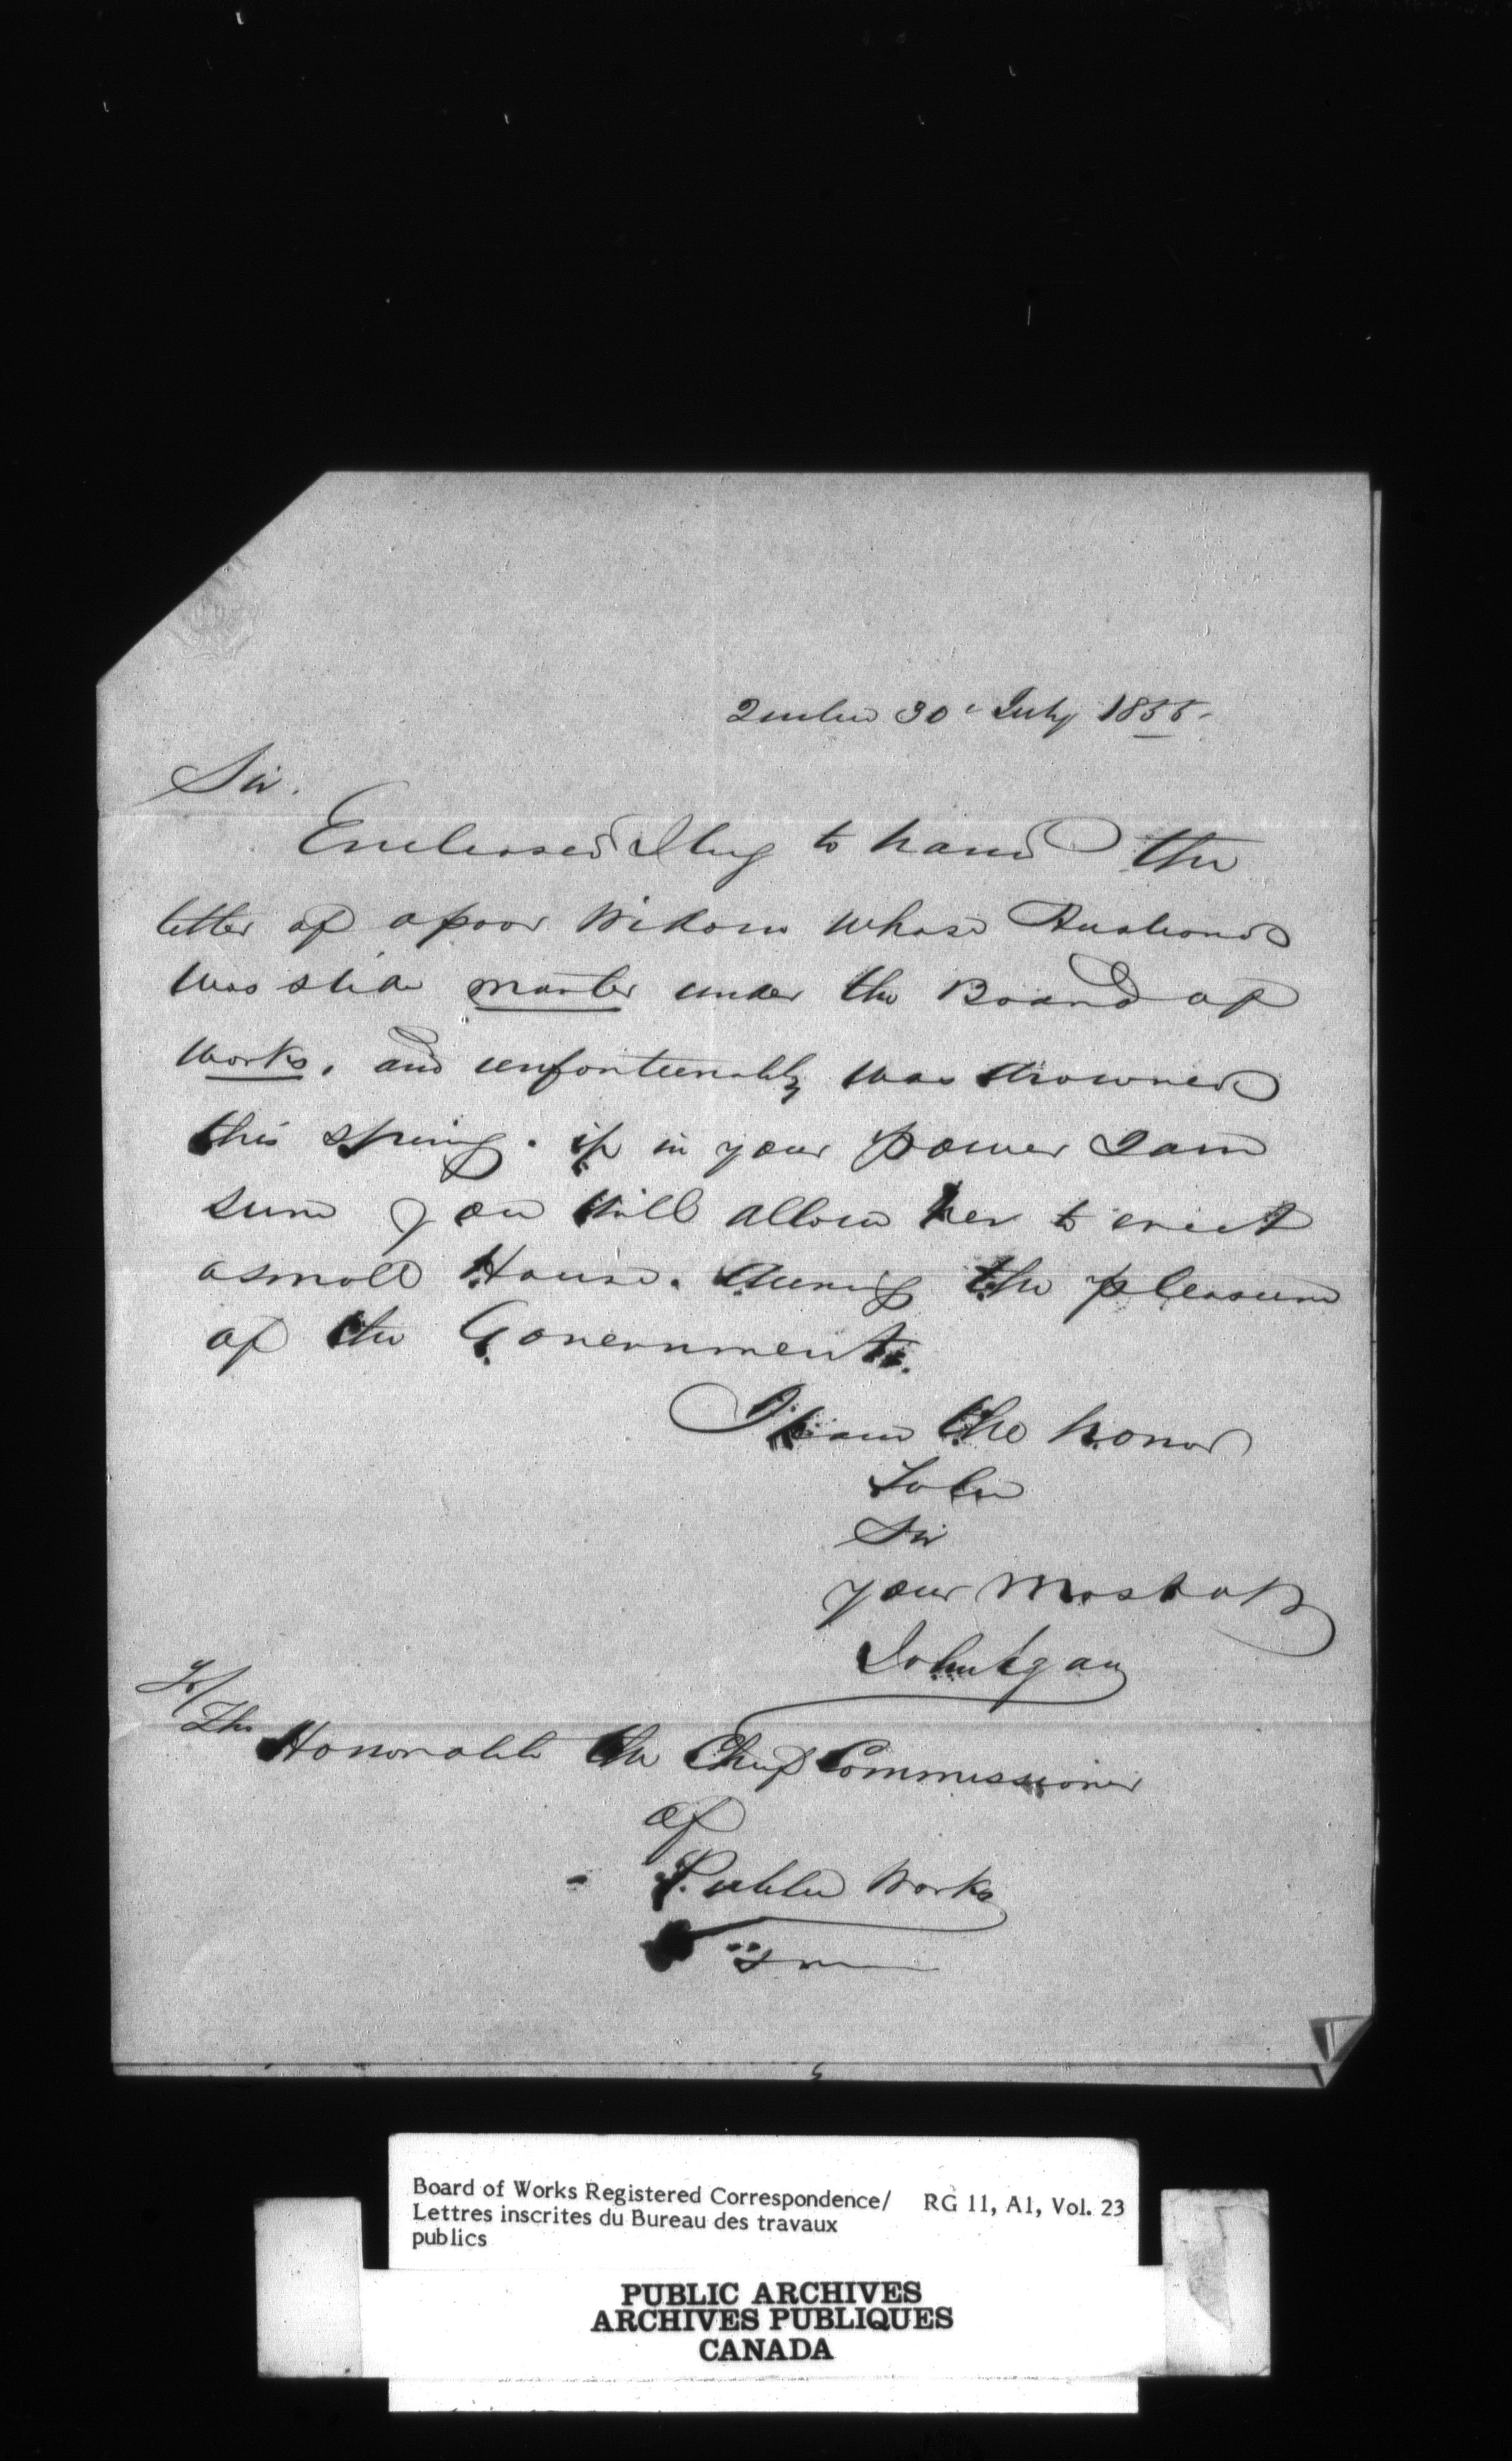 Quebec 30 July 1855.
Sir.
Enclosed I beg to hand the
letter of a poor Widow whose Husband
was slide master under the Board of
works, and unfortunately was drowned
this spring. if in your power I am
sure you will allow her to erect
a small House. during the pleasure
of the Government.
I have the honor
To be
Sir
your Most ob
John Egan
To/
The Honorable the Chief Commissioner
of
Public Works
Board of Works Registered Correspondence/ RG 11, A1, Vol. 23
Lettres inscrites du Bureau des travaux
publics
PUBLIC ARCHIVES
ARCHIVES PUBLIQUES
CANADA